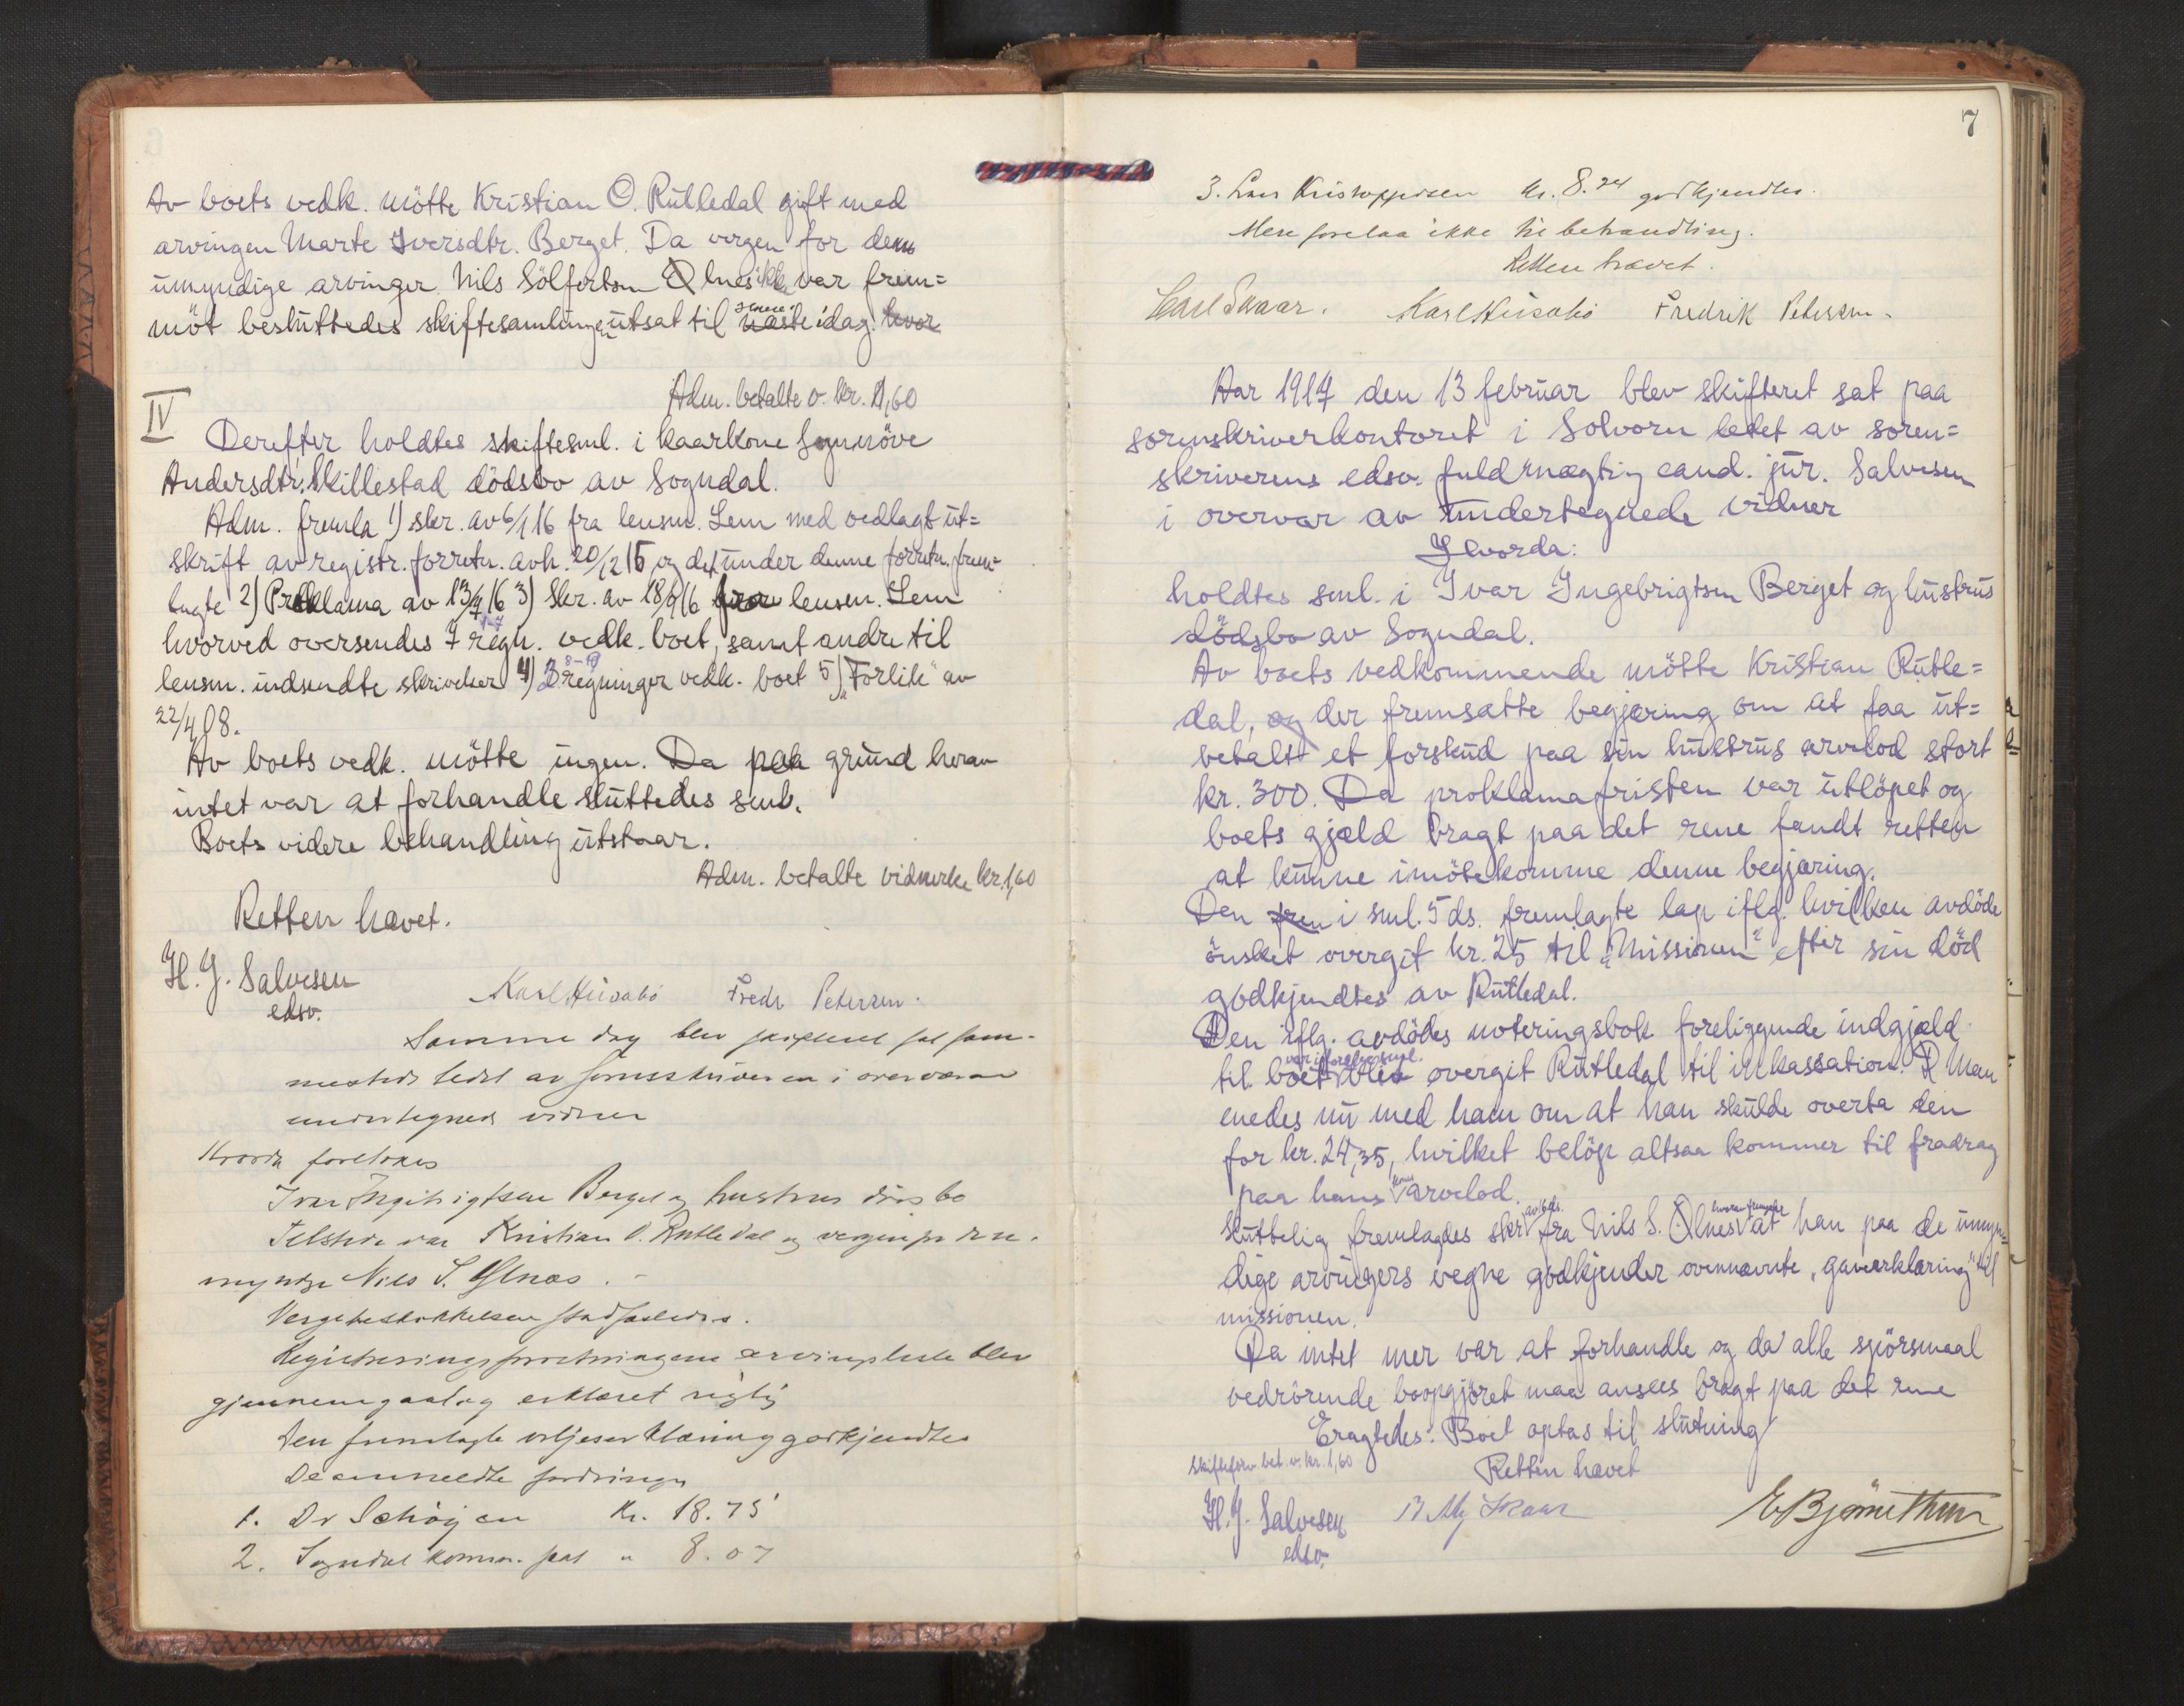 Av boets vedk. mötte Kristian O. Rutledal gift med
arvingen Marte Iversdtr. Berget. Da vergen for de
umyndige arvinger Nils Sölfertsen Ölnes ikke var frem=
möt besluttedes skiftesamlingen utsat til senere idag. hvor
Adm. betalte v. kr. 1,60
IV
Derefter holdtes skiftesml. i kaarkone Synnöve
Andersdtr. Skillestad dödsbo av Sogndal.
Adm. fremla 1) skr. av 6/1 16 fra lensm. Lem med vedlagt ut=
skrift av registr. forretn. avh. 20/12 15 og det under denne forretn. frem=
lagte 2) Proklama av 13/4 16 3) Skr. av 18/9 16 fra lensm. Lem
hvorved oversendes 7 regn. 1-7 vedk. boet, samt andre til
lensm. indsendte skrivelser 4) regninger vedk. boet 5) "Forlik" av
22/4 08.
Av boets vedk. mötte ingen. Da paa grund herav
intet var at forhandle sluttedes sml.
Boets videre behandling utstaar.
Adm. betalte vidnerke kr. 1,60
Retten hævet.
H. J. Salvesen
edsv.
Karl Husabö Fredr Petersen.
Samme dag blev skifteret sat sam-
mesteds ledet av sorenskriveren i overvær av
undertegnede vidner
Hvorda foretokes
Ivar Ingebrigtsen Berget og hustrus dödsbo
Tilstede var Kristian O. Rutledal og vergen for de u-
myndige Nils S. Ølnæs.-
Vergebeskikkelsen stadfæstedes.
Registreringsforretningens arvingsliste blev
gjennemgaat og erklæret rigtig
Den fremlagte viljeserklæring godkjendtes
De anmeldte fordringer
1. Dr Schöyen Kr. 18.75
2. Sogndal komm. kas " 8.07
7
3. Lars Kristoffersen kr. 8.24 godkjendtes.
Mere forelaa ikke til behandling.
Retten hævet.
Karl Skaar. Karl Husabö Fredrik Petersen.
Aar 1917 den 13 februar blev skifteret sat paa
sorenskriverkontoret i Solvorn ledet av soren=
skriverens edsv. fuldmægtig cand. jur. Salvesen
i overvær av undertegnede vidner
Hvorda:
holdtes sml. i Ivar Ingebrigtsen Berget og hustrus
dödsbo av Sogndal.
Av boets vedkommende mötte Kristian Rutle=
dal, og der fremsatte begjæring om at faa ut=
betalt et forskud paa sin hustrus arvelod stort
kr. 300. Da proklamafristen var utlöpet og
boets gjæld bragt paa det rene fandt retten
at kunne imötekomme denne begjæring.
Den frem i sml. 5 ds. fremlagte lap iflg. hvilken avdöde
önsket overgit kr. 25 til "Missionen" efter sin död
godkjendtes av Rutledal.
Den iflg. avdödes noteringsbok foreliggende indgjæld
til boet var i forrige sml. blev overgit Rutledal til inkassation. Man
enedes nu med ham om at han skulde overta den
for kr. 24,35, hvilket belöp altsaa kommer til fradrag
paa hans kones arvelod.
Sluttelig fremlagdes skr. av 6 ds. fra Nils S. Ölnes hvorav fremgaar at han paa de umyn=
dige arvingers vegne godkjender ovennævnte "gaveerklæring" til
missionen.
Da intet mer var at forhandle og da alle spörsmaal
vedrörende boopgjöret maa ansees bragt paa det rene
Eragtedes: Boet optas til slutning
Skifteforv. bet. v. kr. 1,60
Retten hævet
H. J. Salvesen
edsv.
Skaar
E Bjørnethun